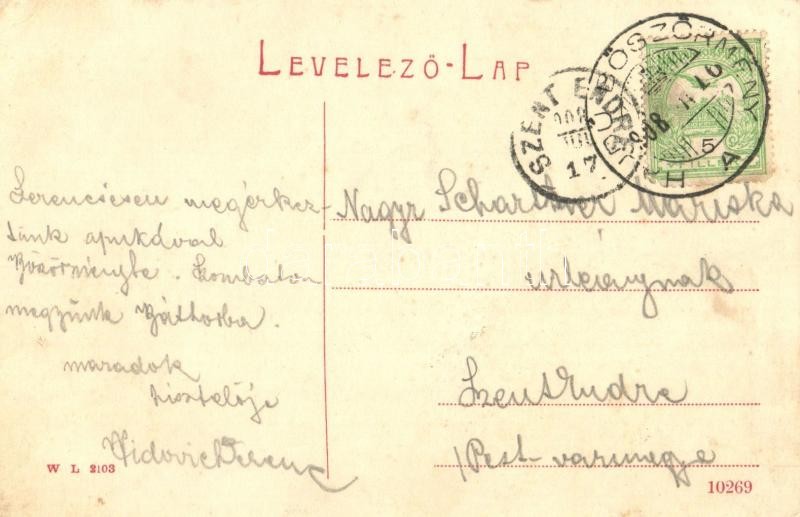 LEVELEZŐ-LAP
HAJDUBÖSZÖRMÉNY
908
16
A
5
SZENT ENDRE
908
17
Szerencsésen megérkez-
tünk apukával
Böszörménybe. Szombaton
megyünk Báthorba.
maradok
tisztelője
Vidovich Ferenc
Nagyr Mariska
urleánynak
Szent Endre
/Pest-varmegye
W L 2103
10269